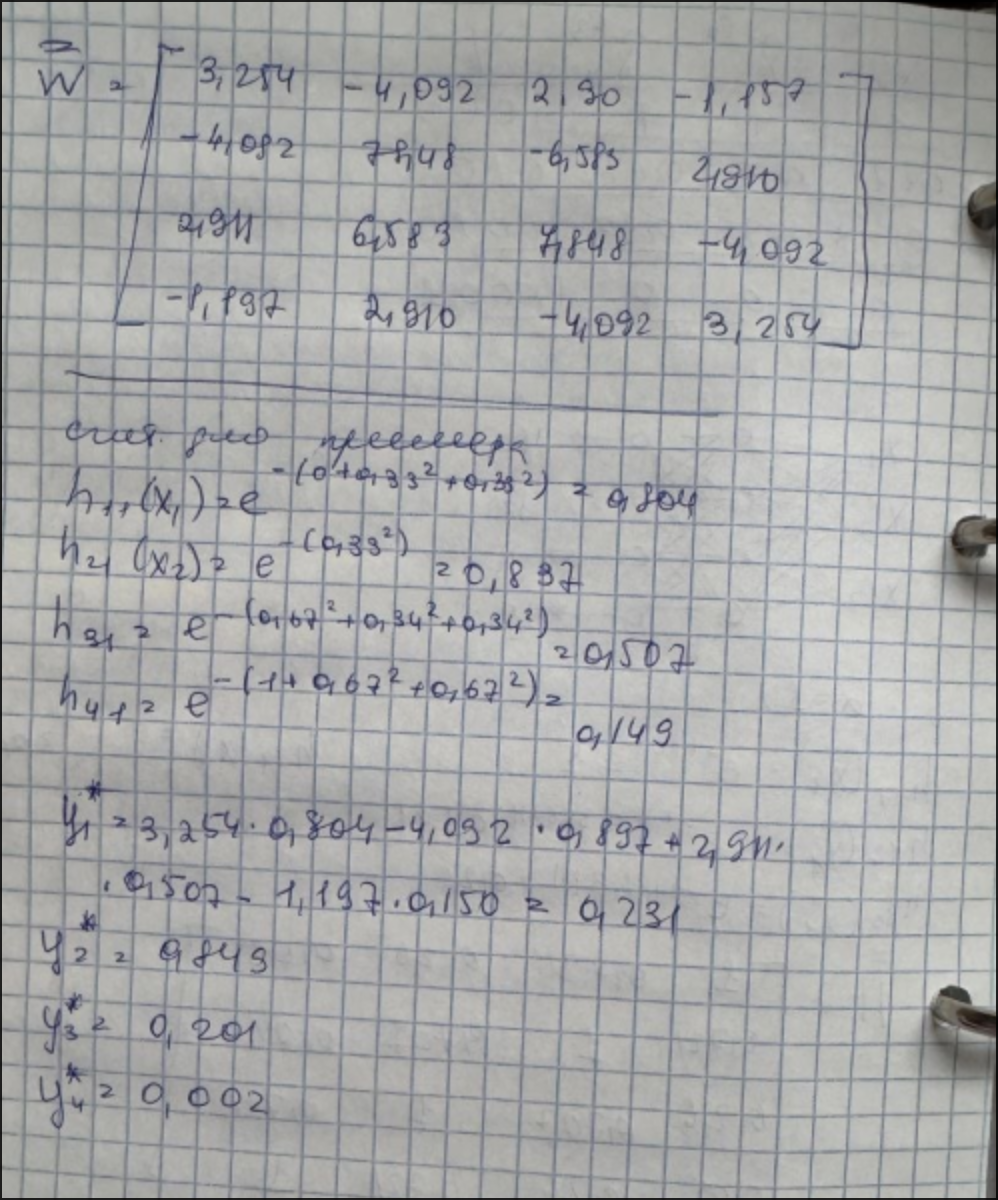 W̿ = [ 3,254 -4,092 2,90 -1,157 ]
-4,092 78,48 -6,583 2,910
2,911 6,583 7,848 -4,092
-1,197 2,910 -4,092 3,254
счит. для примера
h₁₁(x₁) = e^-(0+0,33²+0,33²) = 0,804
h₂₁(x₂) = e^-(0,33²) = 0,897
h₃₁ = e^-(0,67²+0,34²+0,34²) = 0,507
h₄₁ = e^-(1+0,67²+0,67²) = 0,149
y₁* = 3,254·0,804-4,092·0,897+2,911·
·0,507-1,197·0,150 = 0,231
y₂* = 0,849
y₃* = 0,201
y₄* = 0,002